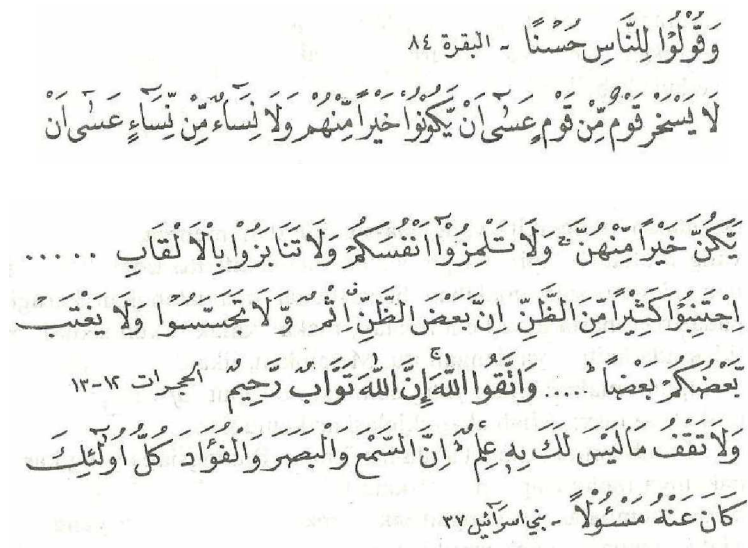 وَقُوْلُوْا لِلنَّاسِ حُسْنًا - البقرة ٨٤
لَا يَسْخَرْ قَوْمٌ مِّنْ قَوْمٍ عَسٰٓى اَنْ يَّكُوْنُوْا خَيْرًا مِّنْهُمْ وَلَا نِسَآءٌ مِّنْ نِّسَآءٍ عَسٰٓى اَنْ
يَّكُنَّ خَيْرًا مِّنْهُنَّ ۚ وَلَا تَلْمِزُوْٓا اَنْفُسَكُمْ وَلَا تَنَابَزُوْا بِالْاَلْقَابِ .....
اِجْتَنِبُوْا كَثِيْرًا مِّنَ الظَّنِّ اِنَّ بَعْضَ الظَّنِّ اِثْمٌ وَّلَا تَجَسَّسُوْا وَلَا يَغْتَبْ
بَّعْضُكُمْ بَعْضًا ۗ .... وَاتَّقُوا اللّٰهَ ۚ إِنَّ اللّٰهَ تَوَّابٌ رَّحِيْمٌ الحجرات ١٢-١٣
وَلَا تَقْفُ مَا لَيْسَ لَكَ بِهٖ عِلْمٌ ۗ اِنَّ السَّمْعَ وَالْبَصَرَ وَالْفُؤَادَ كُلُّ اُولٰٓئِكَ
كَانَ عَنْهُ مَسْئُوْلًا - بني اسرآئيل ٣٧